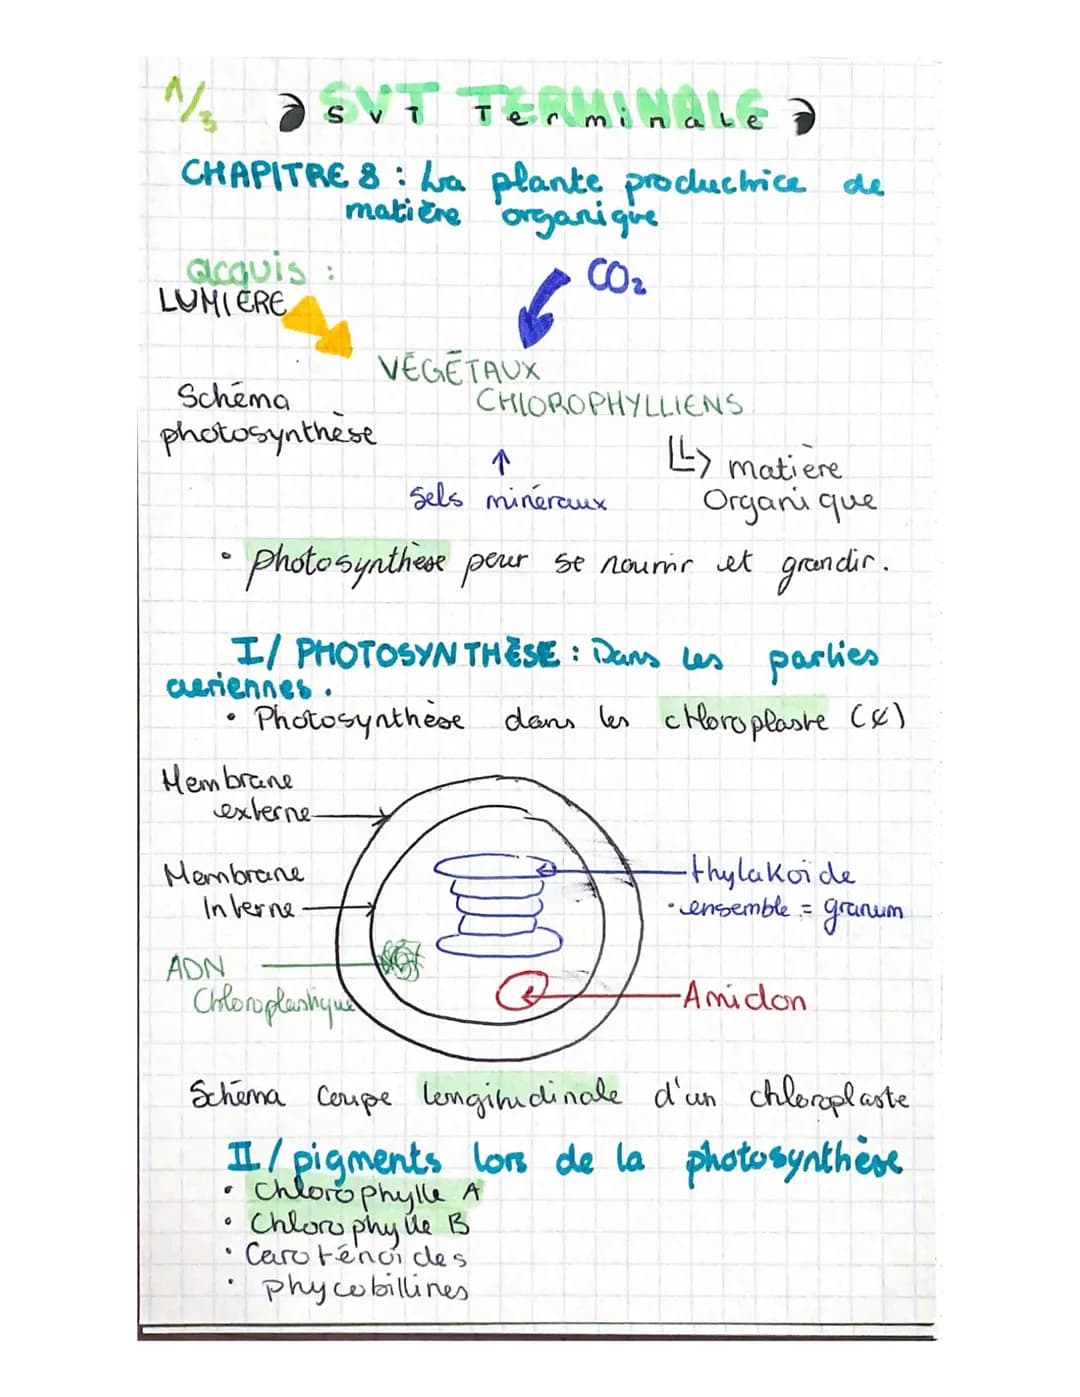 1/3
SVT TERMINALE
SVT Terminale
CHAPITRE 8 : La plante productrice de
matière organique
acquis :
CO₂
LUMIÈRE
VÉGÉTAUX
CHLOROPHYLLIENS
Schéma
photosynthèse
↑
sels minéraux
matière
Organique
• photosynthèse pour se nourrir et grandir.
I/ PHOTOSYNTHÈSE : Dans les parties
aeriennes.
• Photosynthèse dans les chloroplaste (¢)
Membrane
externe
Membrane
Interne
thylakoïde
• ensemble = granum
ADN
Chloroplastique
Amidon
Schéma coupe longitudinale d'un chloroplaste
II/ pigments lors de la photosynthèse
• Chlorophylle A
• Chlorophylle B
• Caroténoïdes
• phycobillines